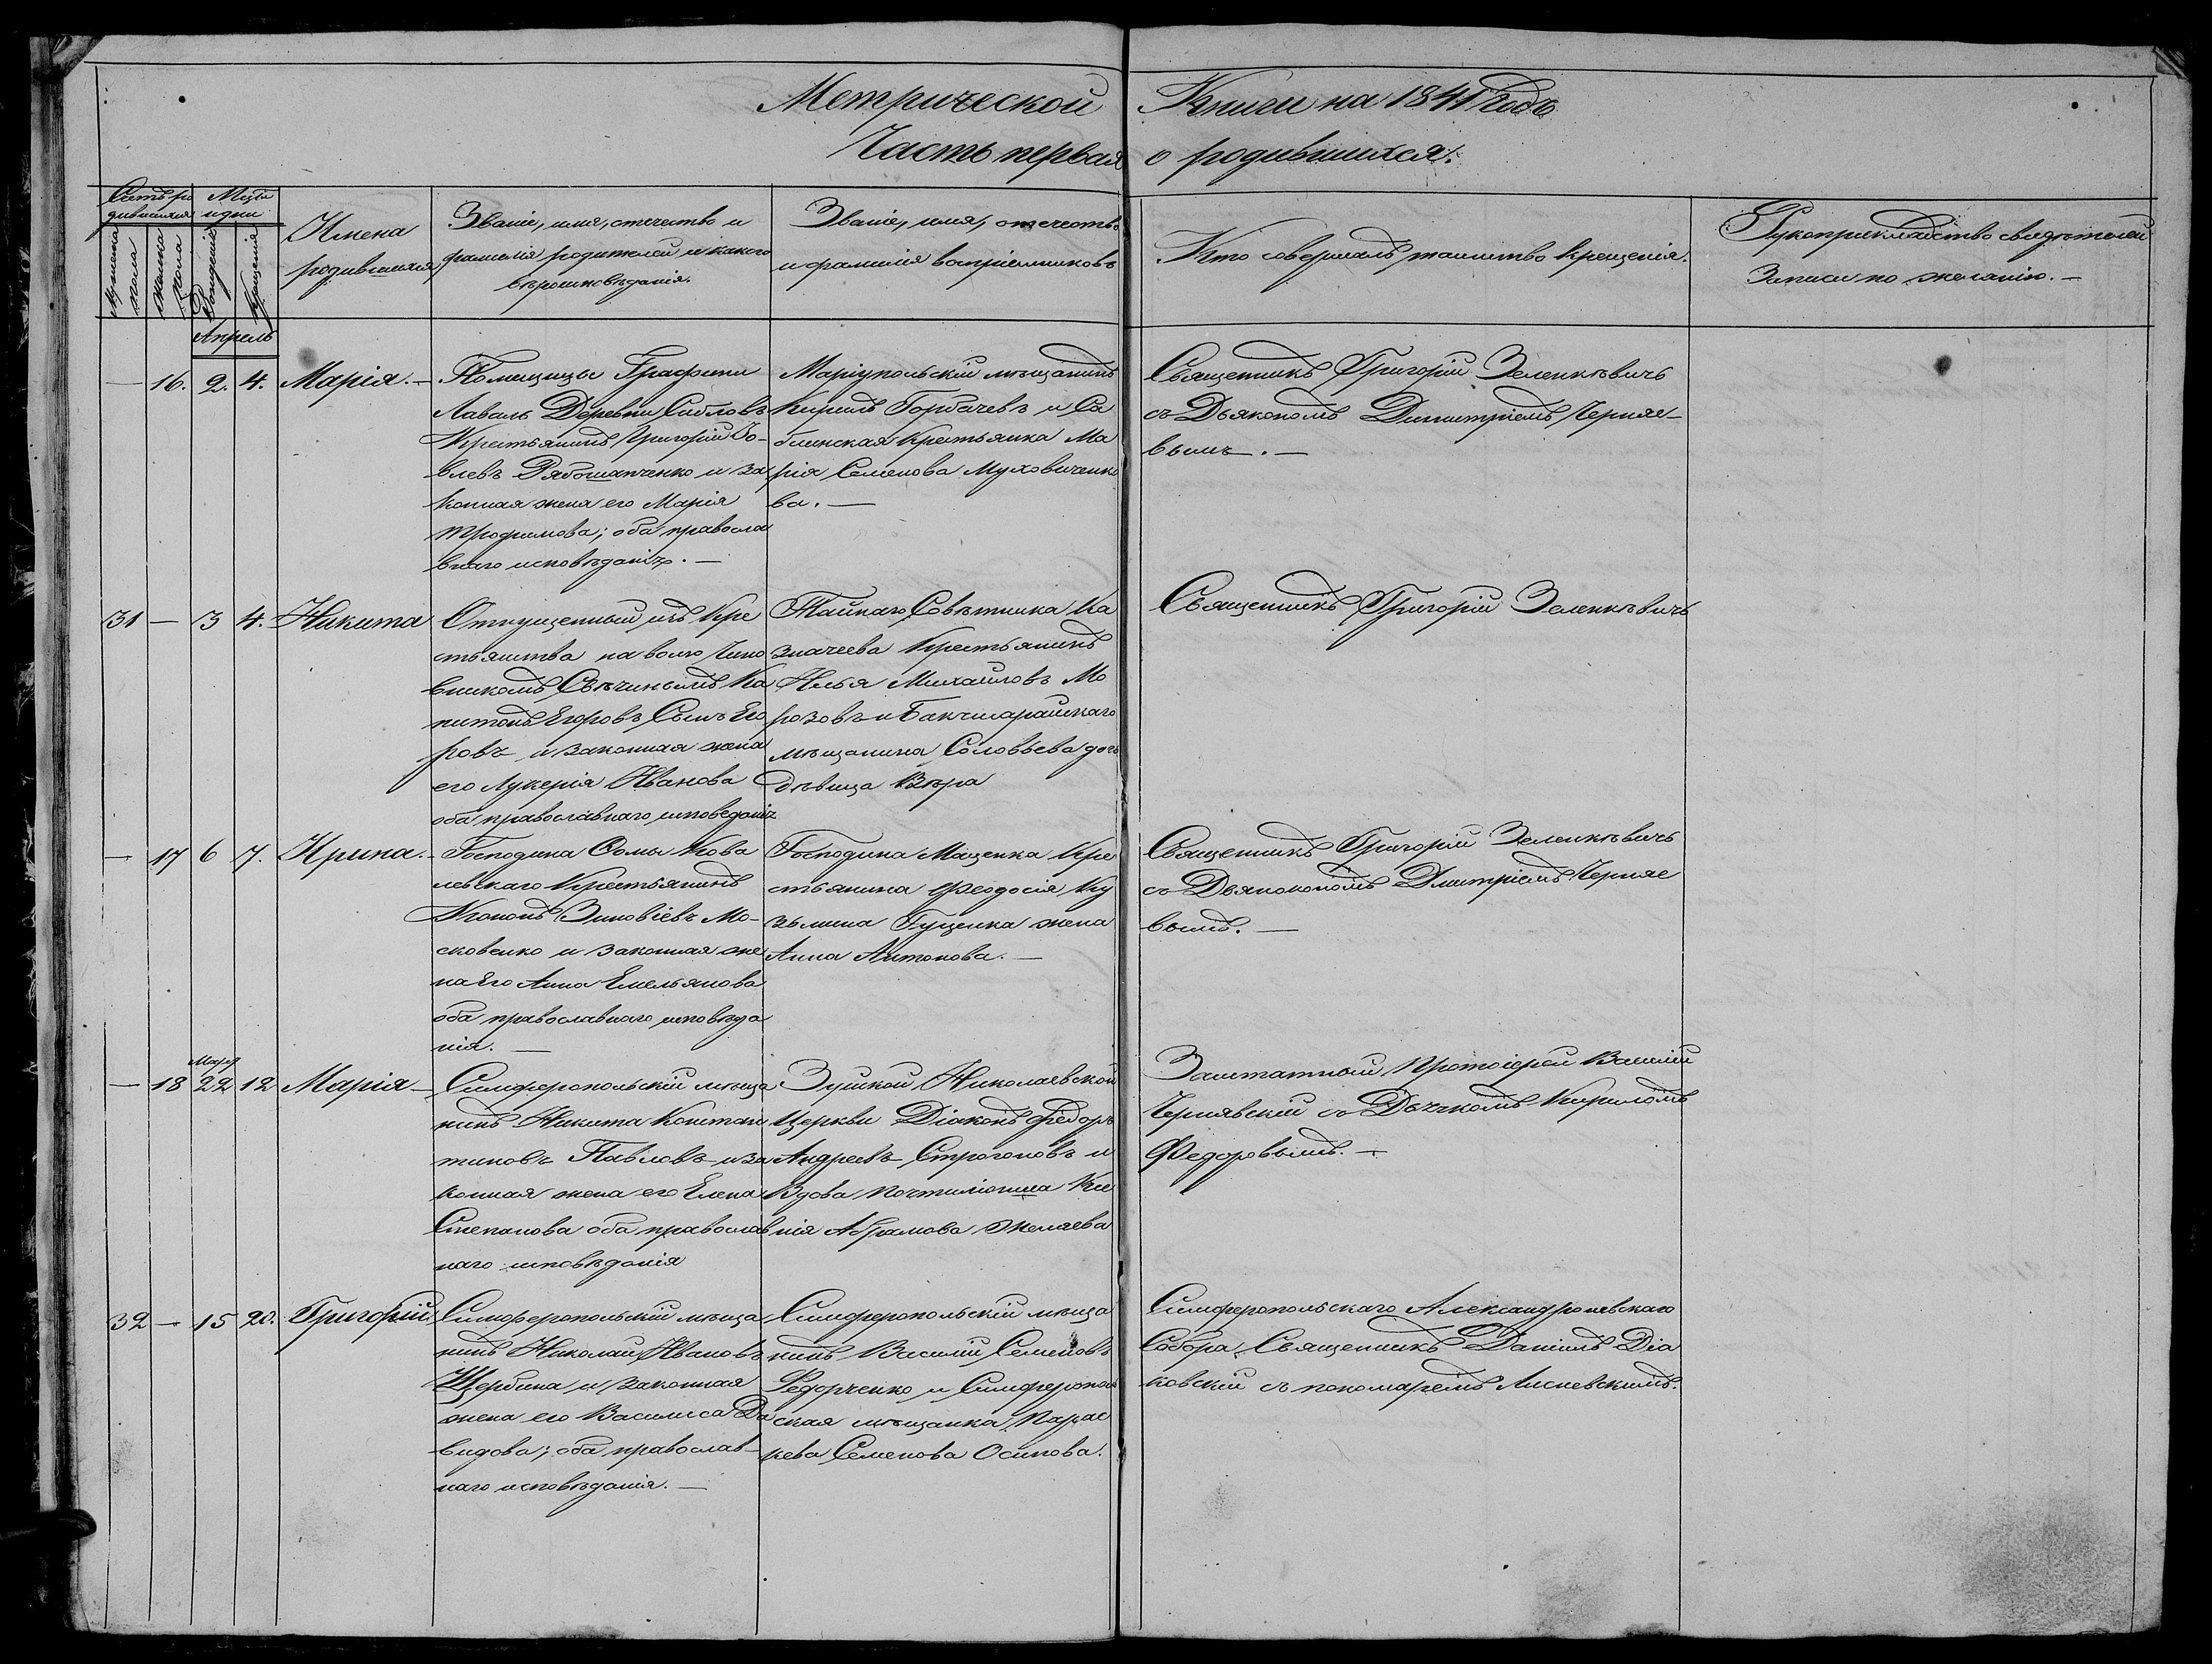 Метрической Книги на 1841 Годъ
Часть первая о родившихся.
Счетъ ро
дившихся
Мѣсяцъ
и дни
Мужеска
пола
Женска
пола
Рожденія
Крещенія
Имена
родившихся
Званіе, имя, отчество и
фамилія родителей и какого
вѣроисповѣданія.
Званіе, имя, отчество
и фамилія воспріемниковъ
Кто совершалъ таинство крещенія.
Рукоприкладство свидѣтелей
Записи по желанію. —
Апрель
— 16. 2. 4. Марія. —
Помещицы Графини
Лаваль Деревни Сабловъ
Крестьянинъ Григорій
влевъ Рябошапченко и за
конная жена его Марія
Трофимова; оба правосла
внаго исповѣданія. —
Маріупольскій мѣщанинъ
Кирилъ Горбачевъ и Са
блинская Крестьянка Ма
рія Семенова Муховиченко
ва. —
Священникъ Григорій Зеленкѣвичъ
съ Дьякономъ Димитріемъ Черняе-
вымъ. —
31 — 3 4. Никита
Отпущенный изъ Кре
стьянства на волю Чино
вникомъ Свѣчинымъ Ка
питонъ Егоровъ Сынъ Его
ровъ и законная жена
его Лукерія Иванова
оба православнаго исповеданія
Тайнаго Совѣтника Ка
значеева Крестьянинъ
Илья Михайловъ Мо
розовъ и Бакчисарайскаго
мѣщанина Соловьева дочь
дѣвица Вѣра
Священникъ Григорій Зеленкѣвичъ
— 17 6 7. Ирина. —
Господина Фомы Кова
левскаго Крестьянинъ
Кононъ Зиновіевъ Мо-
сковенко и законная же
на Его Анна Емельянова
оба православнаго исповѣда
нія. —
Господина Маценка Кре
стьянина Феодосія Ку
зьмина Гуценка жена
Анна Антонова. —
Священникъ Григорій Зеленкѣвичъ
съ Дьяконономъ Дмитріемъ Черняе
вымъ. —
Март
— 18 22 12 Марія —
Симферопольскій мѣща
нинъ Никита Констан
тиновъ Павловъ и за
конная жена его Елена
Степанова оба православ
наго исповѣданія
Зуйской Николаевской
Церкви Діаконъ Федоръ
Андреевъ Строгоновъ и
Вдова почтиліонша Ксе
нія Абрамова Желяева
Заштатный Протоіерей Василій
Чернявскій съ Дьячкомъ Кириломъ
Федоровымъ. —
32 — 15 20. Григорій.
Симферопольскій мѣща
нинъ Николай Ивановъ
Щербина и законная
жена его Василиса Да
видова; оба православ-
наго исповѣданія. —
Симферопольскій мѣща
нинъ Василій Семеновъ
Федорченко и Симферополь
ская мѣщанка Парас
кева Семенова Осипова.
Симферопольскаго Александроневскаго
Собора Священникъ Даніилъ Діа
ковскій съ пономаремъ Лисневскимъ.